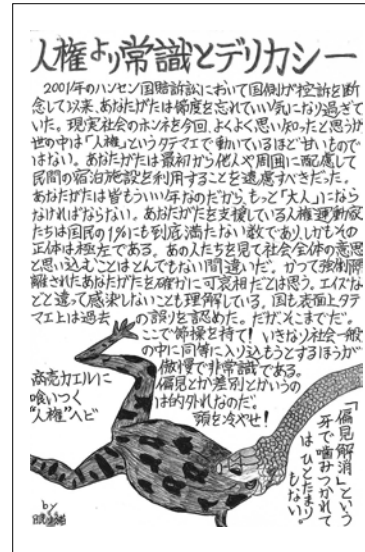 人権より常識とデリカシー
2001年のハンセン国賠訴訟において国側が控訴を断
念して以来、あなたがたは節度を忘れていい気になり過ぎて
いた。現実社会のホンネを今回、よくよく思い知ったと思うが
世の中は「人権」というタテマエで動いているほど甘いもので
はない。あなたがたは最初から他人や周囲に配慮して
民間の宿泊施設を利用することを遠慮すべきだった。
あなたがたは皆もういい年なのだから、もっと「大人」になら
なければならない。あなたがたを支援している人権運動家
たちは国民の1%にも到底満たない数であり、しかもその
正体は極左である。あの人たちを見て社会全体の意思
と思い込むことはとんでもない間違いだ。かつて強制隔
離されたあなたがたを確かに可哀相だとは思う。エイズな
どと違って感染しないことも理解している。国も表面上タテ
マエ上は過去の誤りを認めた。だが、そこまでだ。
ここで節操を持て!いきなり社会一般
の中に同等に入り込もうとするほうが
傲慢で非常識である。
偏見とか差別とかいうの
は的外れなのだ。
頭を冷やせ!
商売カエルに
喰いつく
“人権”ヘビ
「偏見解消」という
牙で噛みつかれて
はひとたまり
もない。
by